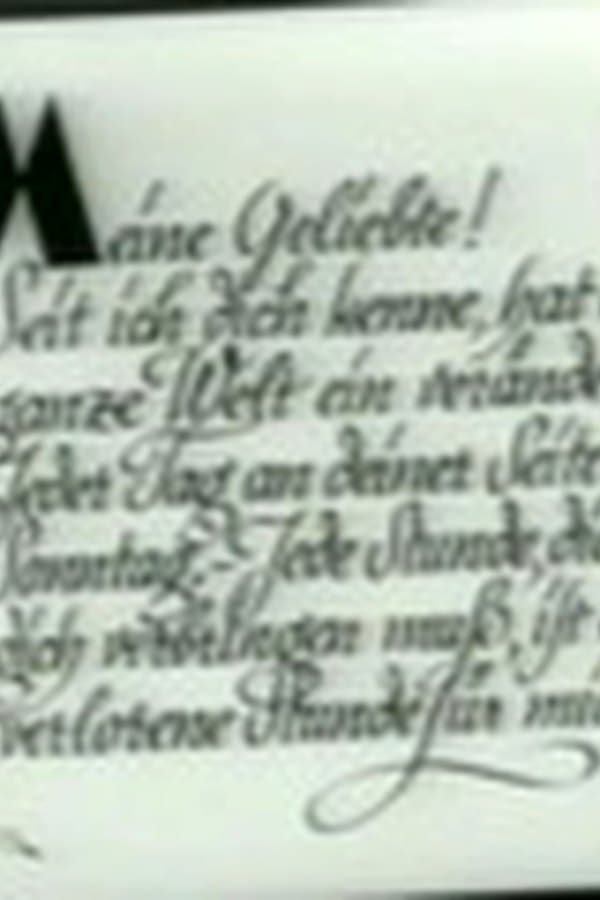 Meine Geliebte!
Seit ich dich kenne, hat
ganze Welt ein
Jeder Tag an deiner Seite
Sonntag. Jede Stunde,
dich verbringen muß, ist
verlorene Stunde für